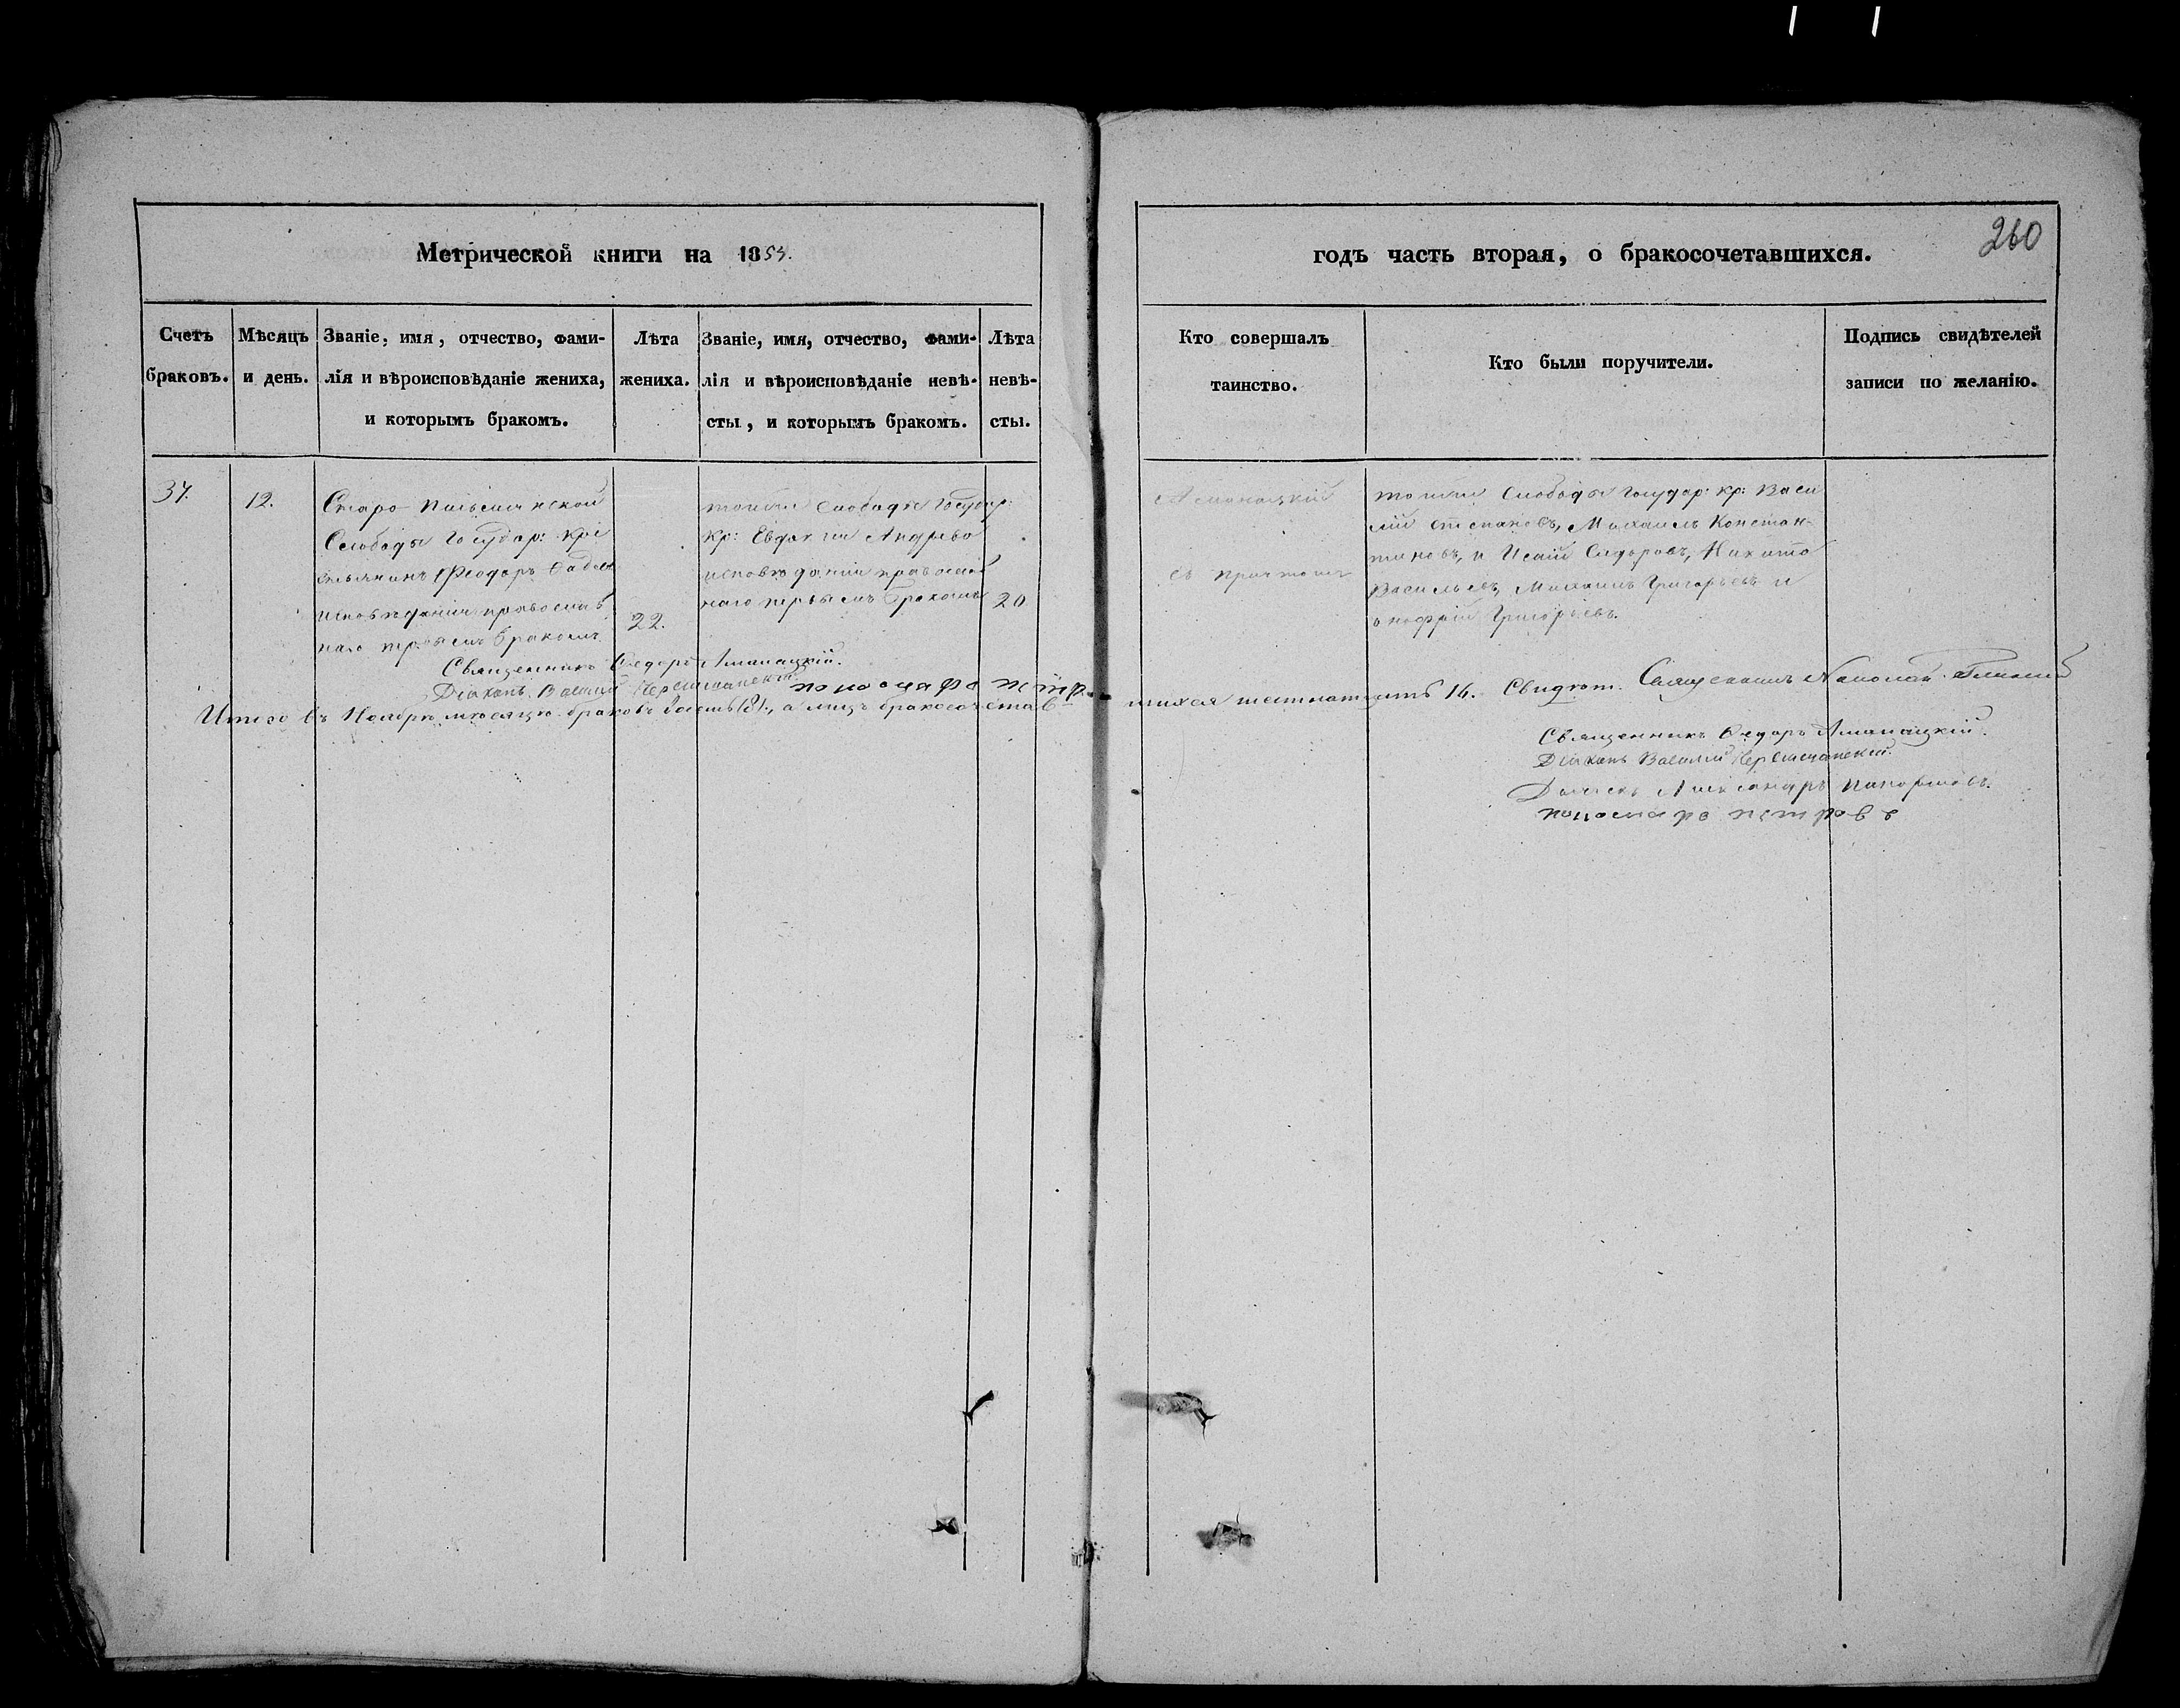 260
Метрической книги на 1854.
годъ часть вторая, о бракосочетавшихся.
Счетъ браковъ.
Мѣсяцъ и день.
Званіе, имя, отчество, фами-
лія и вѣроисповѣданіе жениха,
и которымъ бракомъ.
Лѣта жениха.
Званіе, имя, отчество, фами-
лія и вѣроисповѣданіе невѣ-
сты, и которымъ бракомъ.
Лѣта невѣ-
сты.
Кто совершалъ
таинство.
Кто были поручители.
Подпись свидѣтелей
записи по желанію.
37.
12.
Старо-
Слободы Государ: кре
стьянинъ Феодоръ
исповѣданія православ
наго первымъ бракомъ
22.
тойже слободы Государ:
кр: Евдокия Андреева
исповѣданія православ
наго первымъ бракомъ
20
съ причтомъ
тойже Слободы Государ: кр: Васи
лій Степановъ, Михаилъ Констан-
тиновъ, и Исаій Сидоровъ, Никита
Васильевъ, Михаилъ Григорьевъ и
Онофрій Григорьевъ.
Священникъ Ѳедоръ
Діаконъ Василий
пономарь петр
Итого въ Ноябрѣ мѣсяцѣ браковъ восемь (8), а лицъ бракосочетав
шихся шестнатцать 16. Свидѣт. Священникъ Николай
Священникъ Ѳедоръ
Діаконъ Василій
Дьячекъ Александръ
пономарь петровъ